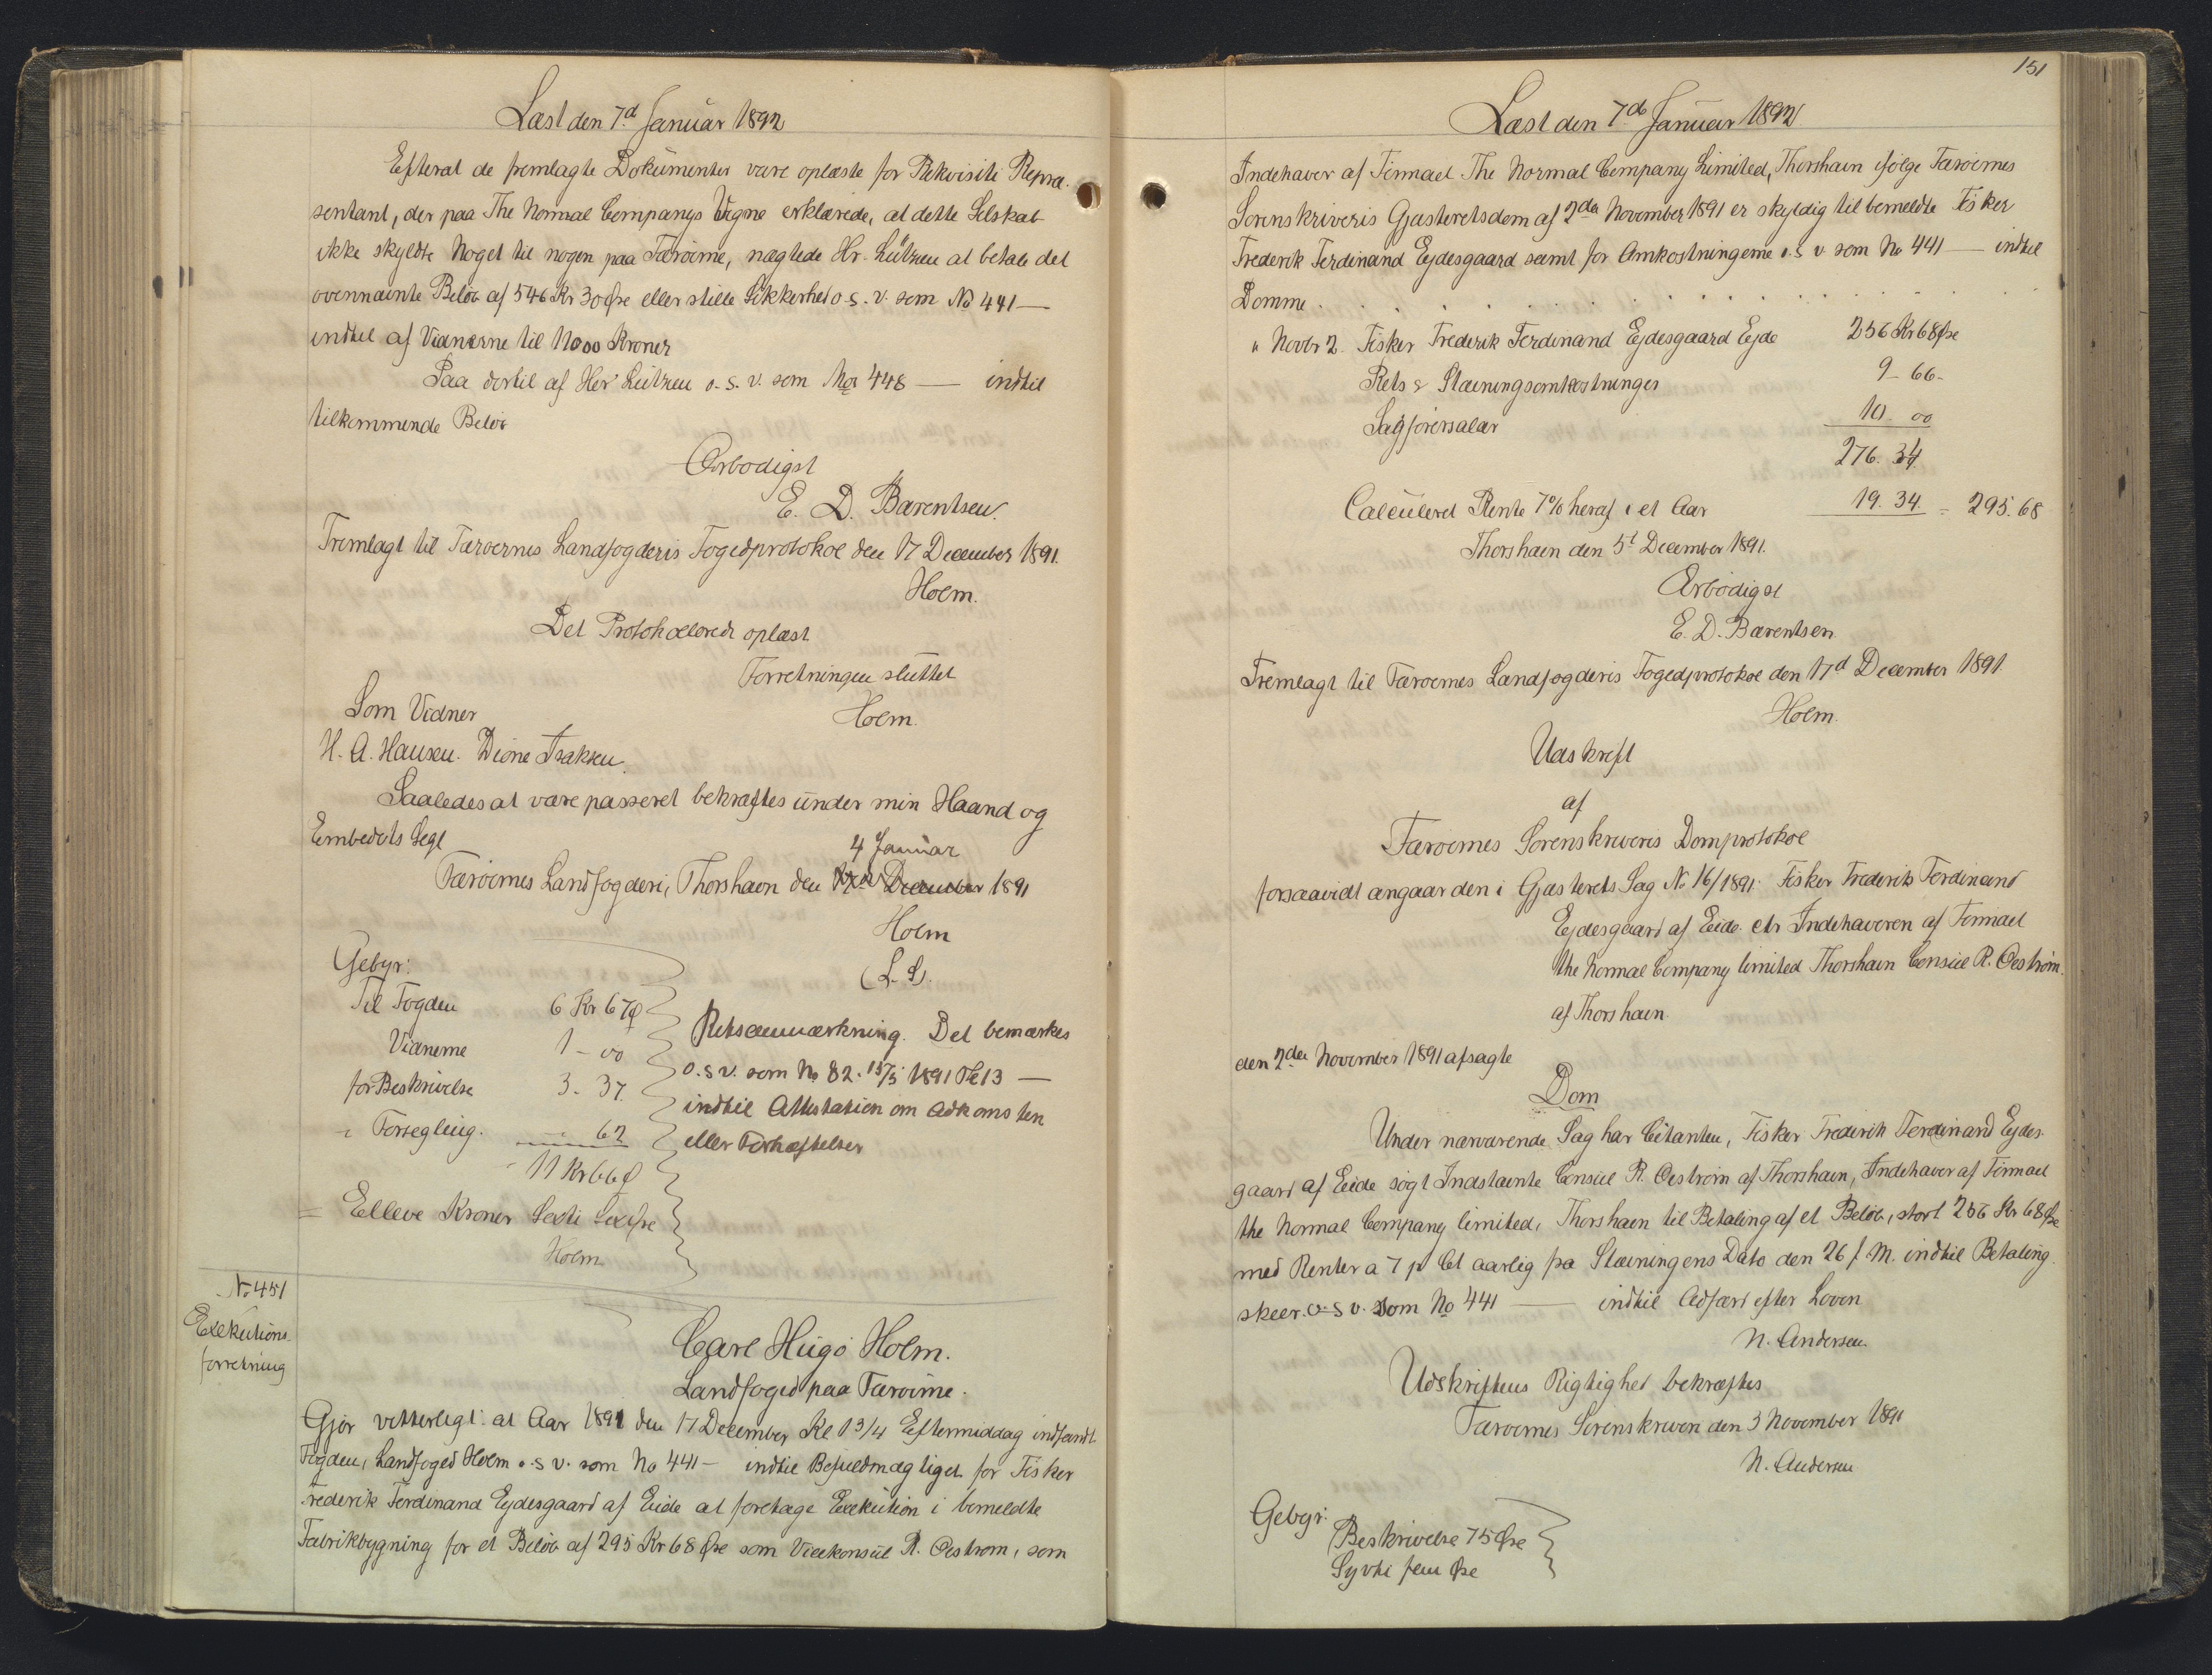 Læst den 7d Januar 1892
Efterat de fremlagte Dokumenter vare oplæste for Rekvisiti Repræ-
sentant, der paa The Normal Companys Vegne erklærede, at dette Selskab
ikke skyldte Noget til nogen paa Færøerne, nægtede Hr. Lützen at betale det
ovennævnte Beløb af 546 Kr 30 Øre eller stille Sikkerhed o.s.v. som No 441 —
indtil af Vidnerne til 11000 Kroner
Paa dertil af Herr Lützen o.s.v. som No 448 — indtil
tilkommende Beløb
Ærbødigst
E. D. Bærentsen.
Fremlagt til Færøernes Landfogderis Fogedprotokol den 17 December 1891.
Holm.
Det Protokollerede oplæst
Forretningen sluttet
Som Vidner
Holm.
H. A. Hansen. Dione Isaksen.
Saaledes at være passeret bekræftes under min Haand og
Embedets Segl
4 Januar
Færøernes Landfogderi, Thorshavn den December 1891
Holm
(L.S.)
Gebyr:
Til Fogden 6 Kr 67 Ø
Vidnerne 1 - 00
for Beskrivelse 3. 37.
- Forsegling. - 62
11 Kr 66 Ø
= Elleve Kroner Sexti Sex Øre
Holm
Retsanmærkning. Det bemærkes
o.s.v. som No 82. 15/5 1891 Fol 13 —
indtil Attestation om Adkomsten
eller Forhæftelser
No 451
Exekutions-
forretning
Carl Hugo Holm.
Landfoged paa Færøerne.
Gjør vitterligt: at Aar 1891 den 17 December Kl 1 3/4 Eftermiddag indfandt
Fogden, Landfoged Holm o.s v. som No 441 — indtil Befuldmægtiget for Fisker
Frederik Ferdinand Ejdesgaard af Eide at foretage Exekution i bemeldte
Fabrikbygning for et Beløb af 295 Kr 68 Øre som Vicekonsul R. Oestrom, som
151
Læst den 7de Januar 1892
Indehaver af Firmaet The Normal Company Limited, Thorshavn ifølge Færøernes
Sorenskriveris Gjæsteretsdom af 2den November 1891 er skyldig til bemeldte Fisker
Frederik Ferdinand Ejdesgaard samt for Omkostningerne o.s v. som No 441 — indtil
Domme . . . . . . . . . . . .
" Novbr 2. Fisker Frederik Ferdinand Ejdesgaard Ejde 256 Kr 68 Øre
Rets & Stævningsomkostninger 9 - 66 -
Sagførersalær 10. 00
276. 34.
Calculeret Rente 7% heraf i et Aar 19. 34. = 295. 68
Thorshavn den 5t December 1891.
Ærbødigst
E. D. Bærentsen
Fremlagt til Færøernes Landfogderis Fogedprotokol den 17d December 1891
Holm.
Udskrift
af
Færøernes Sorenskriveris Domprotokol
forsaavidt angaar den i Gjæsterets Sag No 16/1891: Fisker Frederik Ferdinand
Ejdesgaard af Eide ctr Indehaveren af Firmaet
the Normal Company limited Thorshavn Consul R. Oestrøm.
af Thorshavn.
den 2den November 1891 afsagte
Dom
Under nærværende Sag har Citanten, Fisker Frederik Ferdinand Ejdes-
gaard af Eide søgt Indstævnte Consul R. Oestrøm af Thorshavn, Indehaver af Firmaet
the Normal Company limited, Thorshavn til Betaling af et Beløb, stort 256 Kr 68 Øre
med Renter a 7 p Ct aarlig fra Stævningens Dato den 26 f. M. indtil Betaling
skeer. o.s v. som No 441 — indtil Adfærd efter Loven
N. Andersen
Udskriftens Rigtighed bekræftes
Færøernes Sorenskriveri den 3 November 1891
N. Andersen
Gebyr:
Beskrivelse 75 Øre
Syvti fem Øre